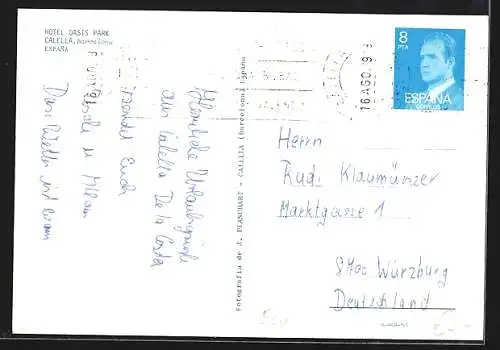 HOTEL OASIS PARK
CALELLA, Barcelona
ESPAÑA
Herzliche Urlaubsgrüße
aus Calella De la Costa
sendet Euch
Das Wetter ist warm
Fotografia de J. PLANCHART - CALELLA (Barcelona) España
16 AGO. 9
8
PTA
ESPAÑA
CORREOS
Herrn
Rud. Klaumünzer
Marktgasse 1
8700 Würzburg
Deutschland